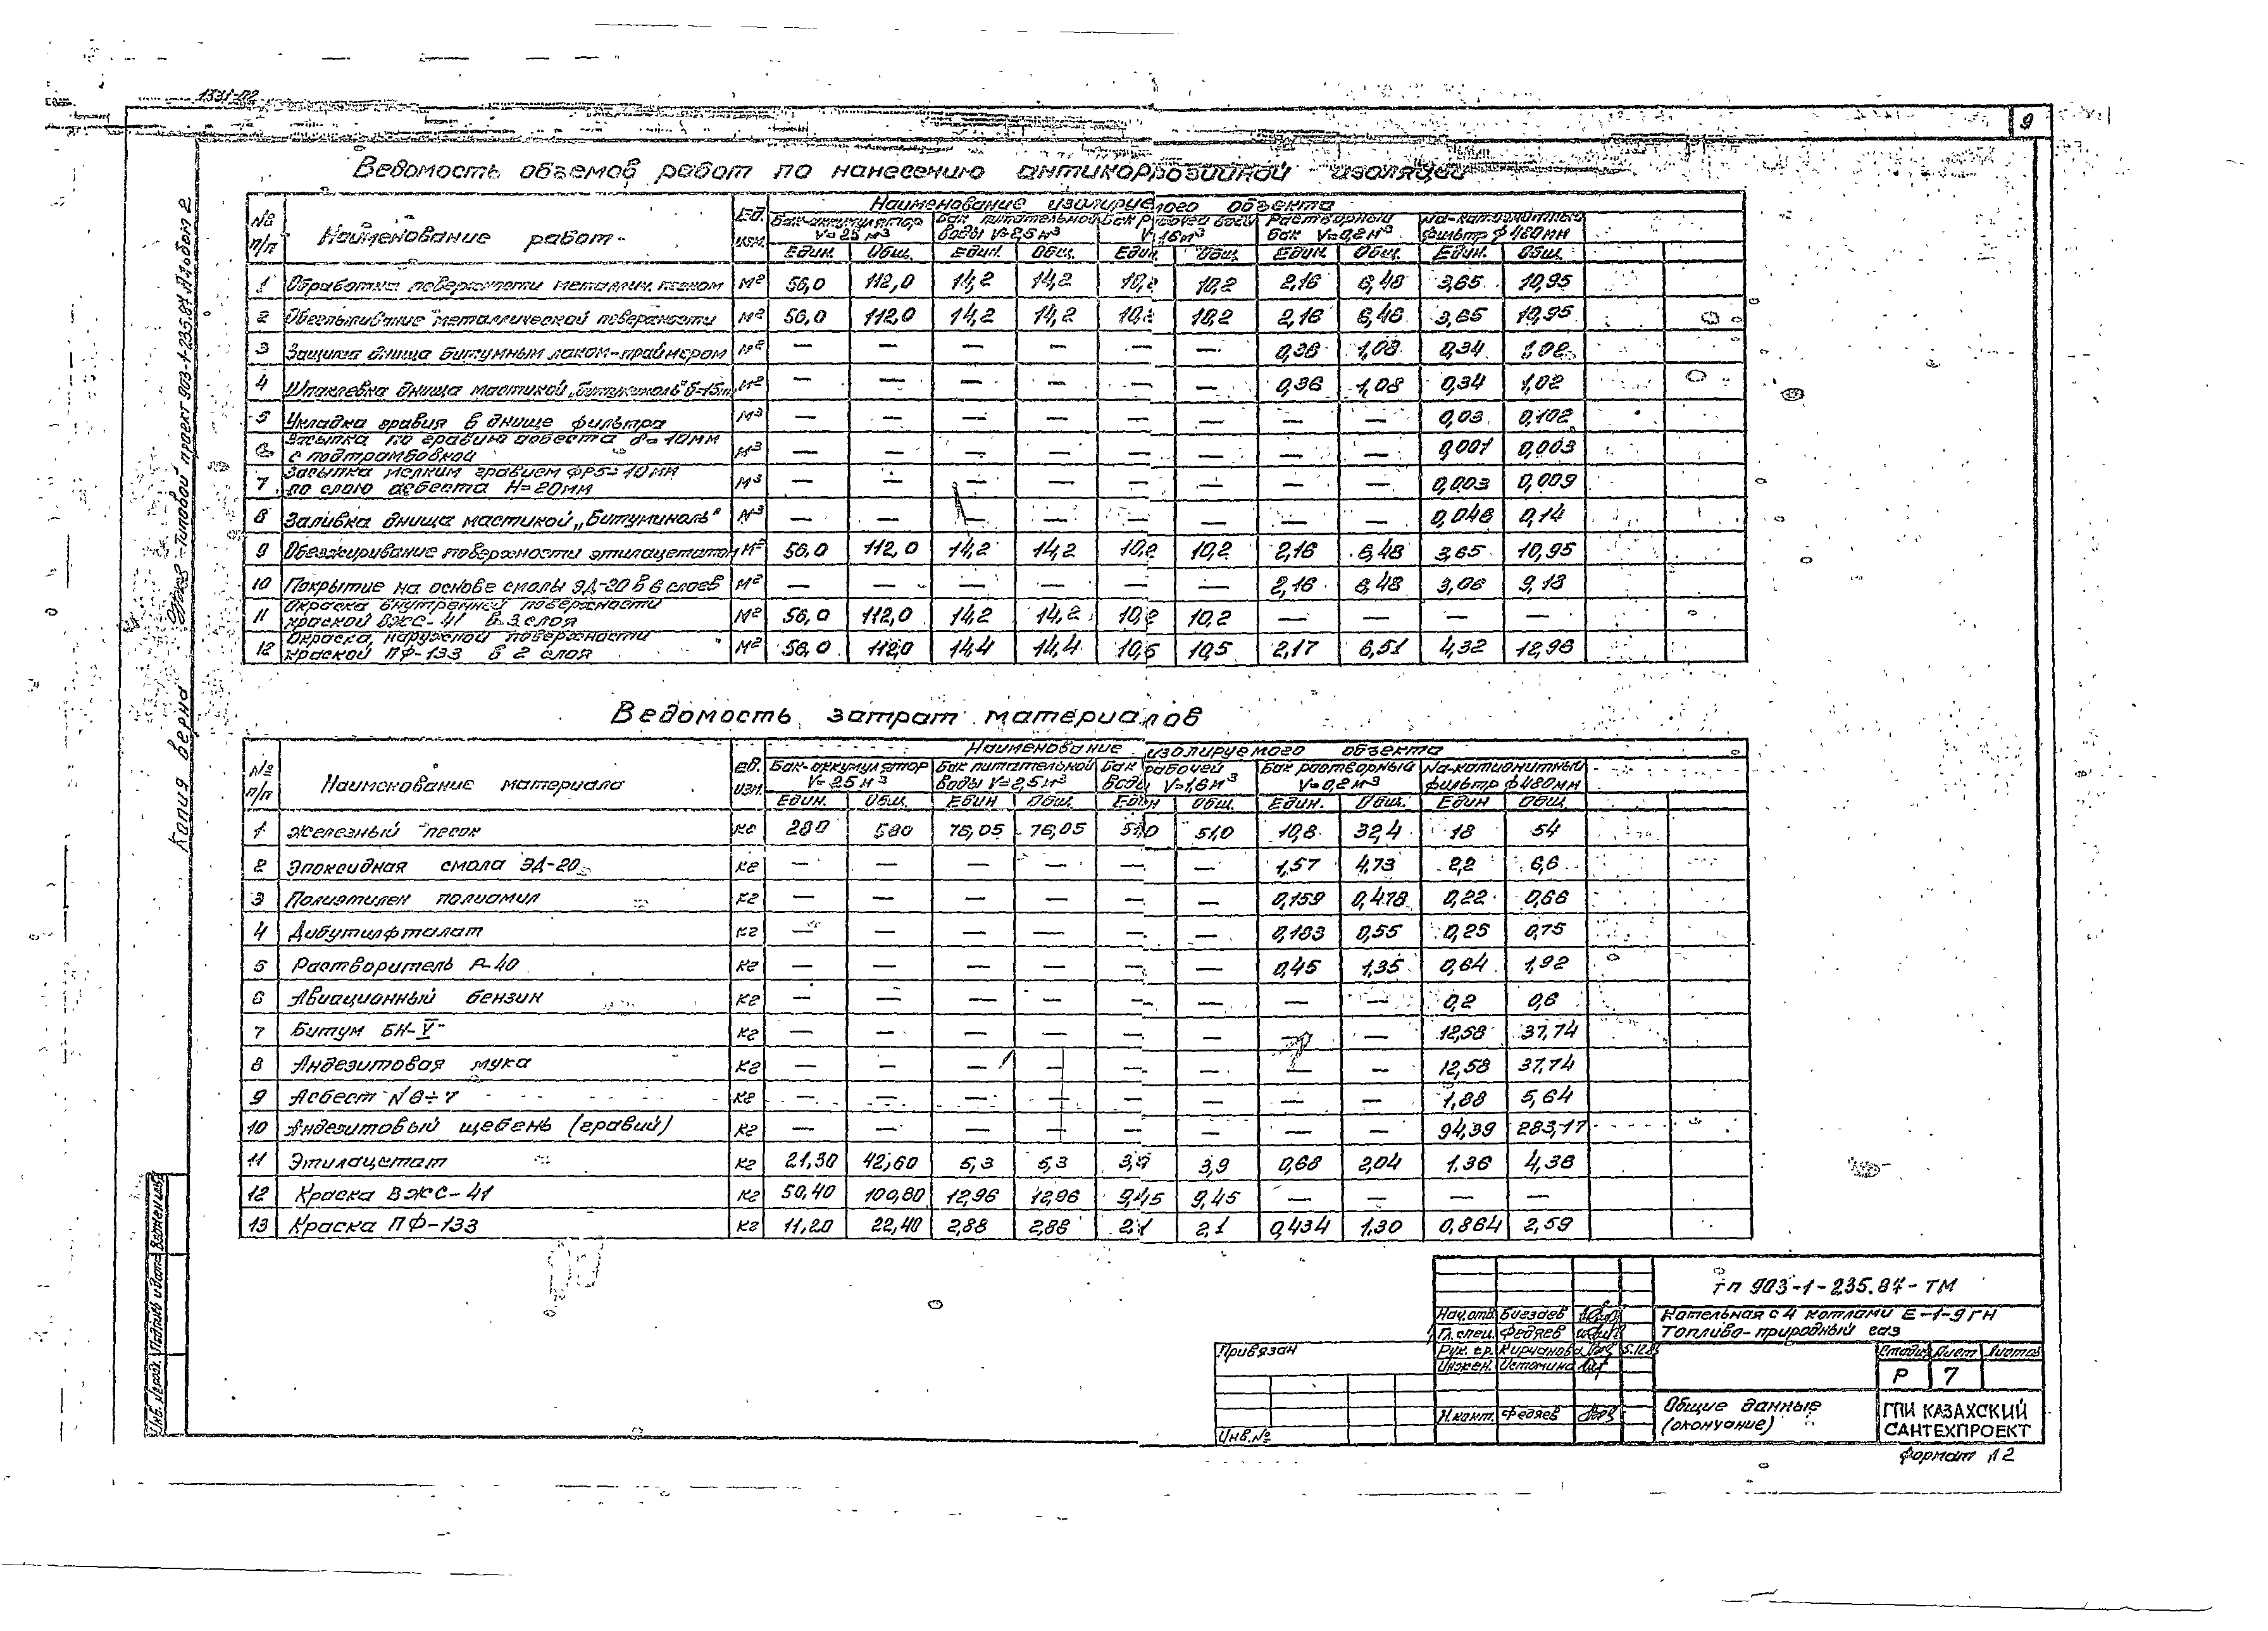 1331-02
9
Ведомость объемов работ по нанесению антикоррозийной изоляции
№ п/п Наименование работ Ед. изм. Наименование изолируемого объекта
Бак-аккумулятор V=25 м³ Бак питательной воды V=2,5 м³ Бак рабочей воды V=1,6 м³ Растворный бак V=0,2 м³ Na-катионитный фильтр ф 480 мм
Един. Общ. Един. Общ. Един. Общ. Един. Общ. Един. Общ.
1 Обработка поверхности металлич. песком м² 56,0 112,0 14,2 14,2 10,2 10,2 2,16 6,48 3,65 10,95
2 Обеспыливание металлической поверхности м² 56,0 112,0 14,2 14,2 10,2 10,2 2,16 6,48 3,65 10,95
3 Защита днища битумным лаком-праймером м² — — — — — — 0,36 1,08 0,34 1,02
4 Шпаклевка днища мастикой „Битуминоль" м² — — — — — — 0,36 1,08 0,34 1,02
5 Укладка гравия в днище фильтра м³ — — — — — — — — 0,03 0,102
6 Засыпка по гравию асбеста δ=10мм с подтрамбовкой м³ — — — — — — — — 0,001 0,003
7 Засыпка мелким гравием ФР5÷10мм по слою асбеста H=20мм м³ — — — — — — — — 0,003 0,009
8 Заливка днища мастикой „Битуминоль" м³ — — — — — — — — 0,046 0,14
9 Обезжиривание поверхности этилацетатом м² 56,0 112,0 14,2 14,2 10,2 10,2 2,16 6,48 3,65 10,95
10 Покрытие на основе смолы ЭД-20 в 6 слоев м² — — — — — — 2,16 6,48 3,06 9,18
11 Окраска внутренней поверхности краской ВЖС-41 в 3 слоя м² 56,0 112,0 14,2 14,2 10,2 10,2 — — — —
12 Окраска наружной поверхности краской ПФ-133 в 2 слоя м² 56,0 112,0 14,4 14,4 10,5 10,5 2,17 6,51 4,32 12,96
Ведомость затрат материалов
№ п/п Наименование материала Ед. изм. Наименование изолируемого объекта
Бак-аккумулятор V=25 м³ Бак питательной воды V=2,5 м³ Бак рабочей воды V=1,6 м³ Бак растворный V=0,2 м³ Na-катионитный фильтр ф 480 мм
Един. Общ. Един Общ. Един Общ. Един. Общ. Един Общ.
1 Железный песок кг 280 560 76,05 76,05 51,0 51,0 10,8 32,4 18 54
2 Эпоксидная смола ЭД-20 кг — — — — — — 1,57 4,73 2,2 6,6
3 Полиэтилен полиамил кг — — — — — — 0,159 0,478 0,22 0,66
4 Дибутилфталат кг — — — — — — 0,183 0,55 0,25 0,75
5 Растворитель Р-40 кг — — — — — — 0,45 1,35 0,64 1,92
6 Авиационный бензин кг — — — — — — — — 0,2 0,6
7 Битум БН-V кг — — — — — — — — 12,58 37,74
8 Андезитовая мука кг — — — — — — — — 12,58 37,74
9 Асбест №6÷7 кг — — — — — — — — 1,88 5,64
10 Андезитовый щебень (гравий) кг — — — — — — — — 94,39 283,17
11 Этилацетат кг 21,30 42,60 5,3 5,3 3,9 3,9 0,68 2,04 1.36 4,36
12 Краска ВЖС-41 кг 50,40 100,80 12,96 12,96 9,45 9,45 — — — —
13 Краска ПФ-133 кг 11,20 22,40 2,88 2,88 2,1 2,1 0,434 1,30 0,864 2,59
Копия верна Типовой проект 903-1-235.87 Альбом 2
Инв. № подл. Подпись и дата Взамен инв.
ТП 903-1-235.87-ТМ
Котельная с 4 котлами Е-1-9ГН
Топливо-природный газ
Нач.отд.
Гл.спец. Федяев
Рук. гр. Кирчанова
Инжен. Истомина
Н.конт. Федяев
Привязан
Инв.№
Стадия Лист Листов
Р 7
Общие данные
(окончание)
ГПИ КАЗАХСКИЙ
САНТЕХПРОЕКТ
Формат 12